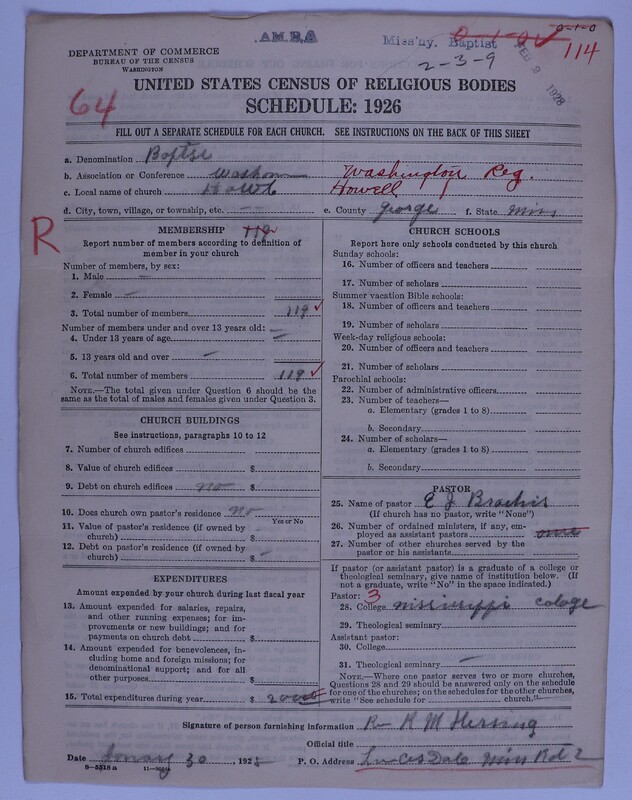 A.M.B.A
Miss'ny. Baptist
0-1-0
114
2-3-9
FEB 9 1928
DEPARTMENT OF COMMERCE
BUREAU OF THE CENSUS
WASHINGTON
UNITED STATES CENSUS OF RELIGIOUS BODIES
64
SCHEDULE: 1926
FILL OUT A SEPARATE SCHEDULE FOR EACH CHURCH. SEE INSTRUCTIONS ON THE BACK OF THIS SHEET
a. Denomination
b. Association or Conference Washington Reg.
c. Local name of church Howell
d. City, town, village, or township, etc. — e. County George f. State Miss
R
MEMBERSHIP 119
Report number of members according to definition of
member in your church
Number of members, by sex:
1. Male —
2. Female —
3. Total number of members 119
Number of members under and over 13 years old: —
4. Under 13 years of age —
5. 13 years old and over —
6. Total number of members 119
NOTE.—The total given under Question 6 should be the
same as the total of males and females given under Question 3.
CHURCH BUILDINGS
See instructions, paragraphs 10 to 12
7. Number of church edifices
8. Value of church edifices $
9. Debt on church edifices no $
10. Does church own pastor's residence no
Yes or No
11. Value of pastor's residence (if owned by
church) $
12. Debt on pastor's residence (if owned by
church) $
EXPENDITURES
Amount expended by your church during last fiscal year
13. Amount expended for salaries, repairs,
and other running expenses; for im-
provements or new buildings; and for
payments on church debt $
14. Amount expended for benevolences, in-
cluding home and foreign missions; for
denominational support; and for all
other purposes $
15. Total expenditures during year $
CHURCH SCHOOLS
Report here only schools conducted by this church
Sunday schools:
16. Number of officers and teachers
17. Number of scholars
Summer vacation Bible schools:
18. Number of officers and teachers
19. Number of scholars
Week-day religious schools:
20. Number of officers and teachers
21. Number of scholars
Parochial schools:
22. Number of administrative officers
23. Number of teachers—
a. Elementary (grades 1 to 8)
b. Secondary
24. Number of scholars—
a. Elementary (grades 1 to 8)
b. Secondary
PASTOR
25. Name of pastor E J
(If church has no pastor, write "None")
26. Number of ordained ministers, if any, em-
ployed as assistant pastors
27. Number of other churches served by the
pastor or his assistants
If pastor (or assistant pastor) is a graduate of a college or
theological seminary, give name of institution below. (If
not a graduate, write "No" in the space indicated.)
Pastor: 3
28. College mississippi cologe
29. Theological seminary
Assistant pastor:
30. College
31. Theological seminary —
NOTE.—Where one pastor serves two or more churches,
Questions 28 and 29 should be answered only on the schedule
for one of the churches; on the schedules for the other churches,
write "See schedule for church."
Signature of person furnishing information R M
Official title
Date 30, 1928 P. O. Address Miss Rd 2
8-5518 a